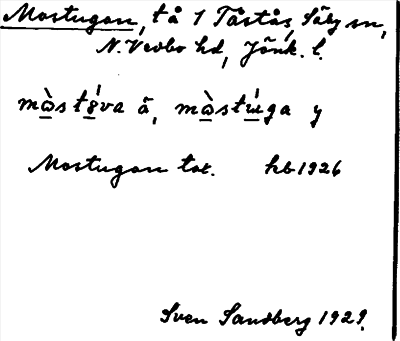 Mostugan, tå 1 Tåstås, Säby sn,
N. Vedbo hd, Jönk. l.
mò̲stʚ́va ä, mò̲stú̲ga y
Mostugan tor. hb 1926
Sven Sandberg 1929.